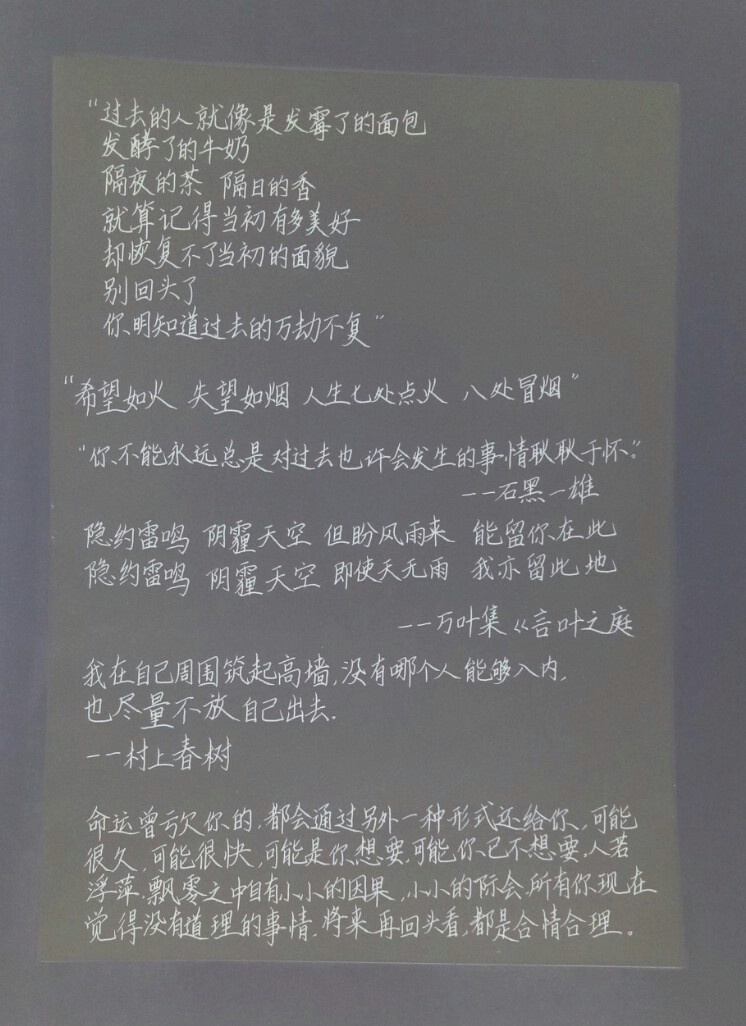 “过去的人就像是发霉了的面包
发酵了的牛奶
隔夜的茶 隔日的香
就算记得当初有多美好
却恢复不了当初的面貌
别回头了
你明知道过去的万劫不复”
“希望如火 失望如烟 人生七处点火 八处冒烟”
“你不能永远总是对过去也许会发生的事情耿耿于怀.”
——石黑一雄
隐约雷鸣 阴霾天空 但盼风雨来 能留你在此
隐约雷鸣 阴霾天空 即使天无雨 我亦留此地
——万叶集《言叶之庭
我在自己周围筑起高墙,没有哪个人能够入内,
也尽量不放自己出去.
——村上春树
命运曾亏欠你的,都会通过另外一种形式还给你,可能
很久,可能很快,可能是你想要,可能你已不想要,人若
浮萍,飘零之中自有小小的因果,小小的际会,所有你现在
觉得没有道理的事情,将来再回头看,都是合情合理。